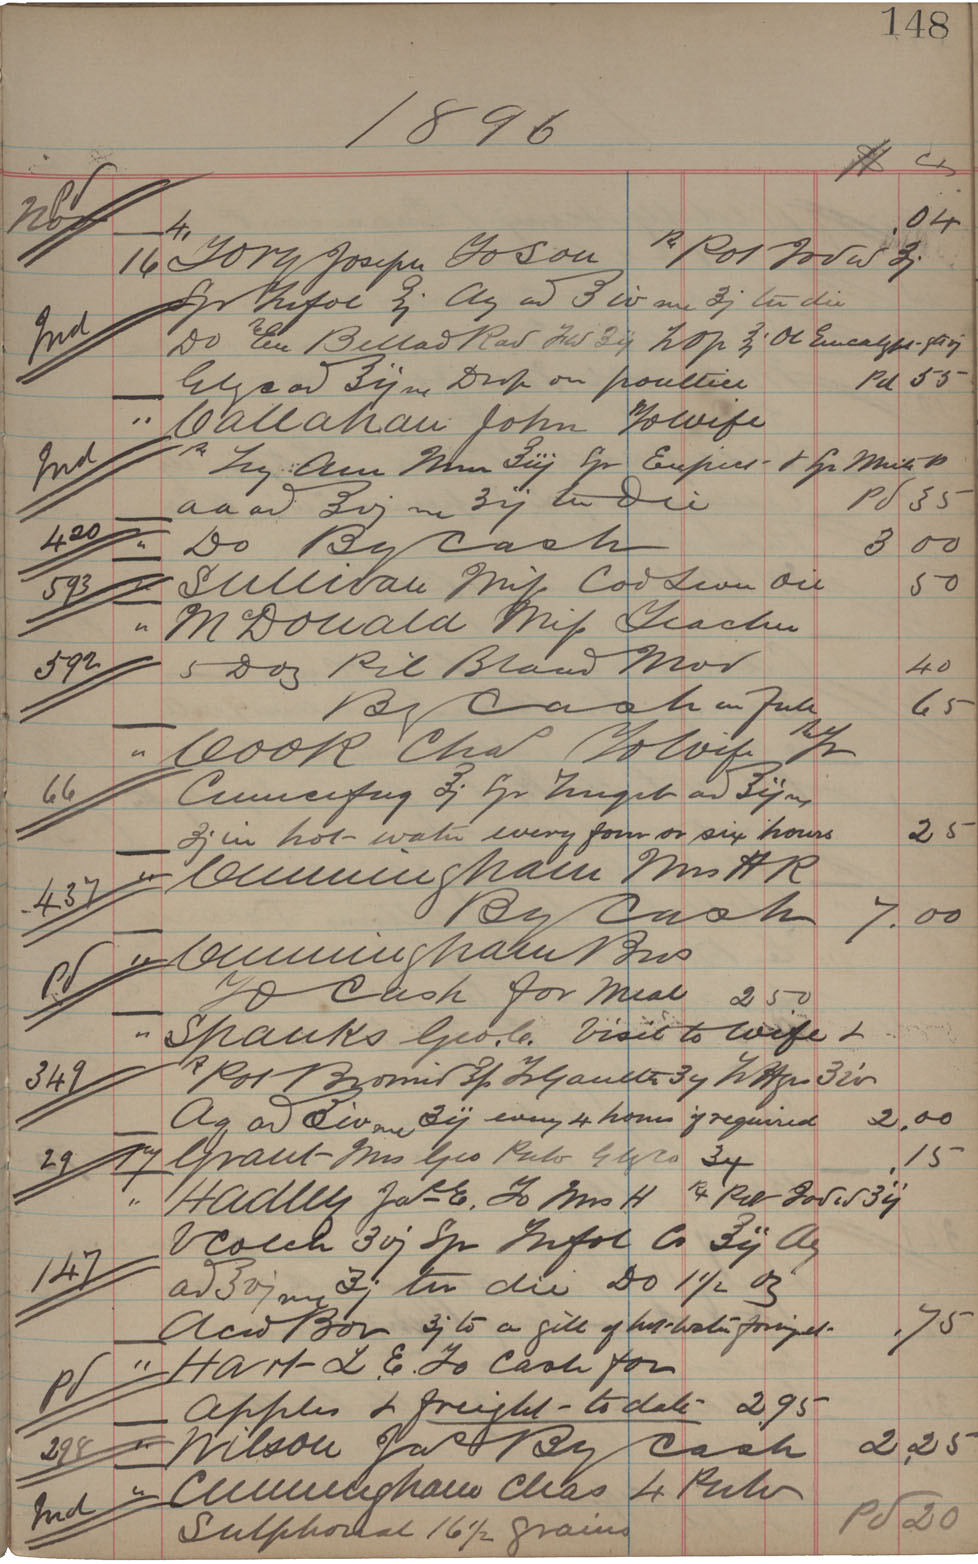 148
1896
$ cts
Nov Pd
4, .04
16 Tory Joseph To Son Rx Pot Iod ʒj
Syr Trifol ℥j Aq ad ℥iv ʒj ter die
Ind
Do Bellad Rad ʒij Ol Eucalypt
Glyc ad ℥ij Drop on poultice Pd 55
" Callahan John To Wife
Ind
Rx Am Mur ʒiij Syr & Syr
aa ad ℥vj ʒij ter die Pd 35
420 " Do By Cash 3 00
593 " Sullivan Miss Cod Liver Oil 50
" McDonald Miss Teacher
592 5 Doz Pil Blaud Mod 40
By Cash in full 65
" Cook Chas To Wife Rx Tr
66 Cimicifug ℥j Syr ad ℥ij
ʒj in hot water every four or six hours 25
437 " Cunningham Mrs H R
By Cash 7.00
Pd " Cunningham Bros
To Cash for Meal 2 50
" Spanks Geo. C. Visit to Wife &
349 Rx Pot Bromid Gaulth
Aq ad ℥iv ʒij every 4 hours if required 2.00
29 17 Grant Mrs Geo Pulv .15
" Hadley Jas E. To Mrs H Rx Pot Iod ʒij
V Colch ʒvj Syr Trifol Co ℥ij Aq
147 ad ℥vj ʒj ter die Do 1 1/2 oz
Acid Bor ʒj to a gill of hot water .75
Pd " Hart L. E. To Cash for
Apples & freight to date 2.95
298 " Wilson Jas By Cash 2.25
Ind " Cunningham Chas 4 Pulv
Sulphonal 16 1/2 grains Pd 20